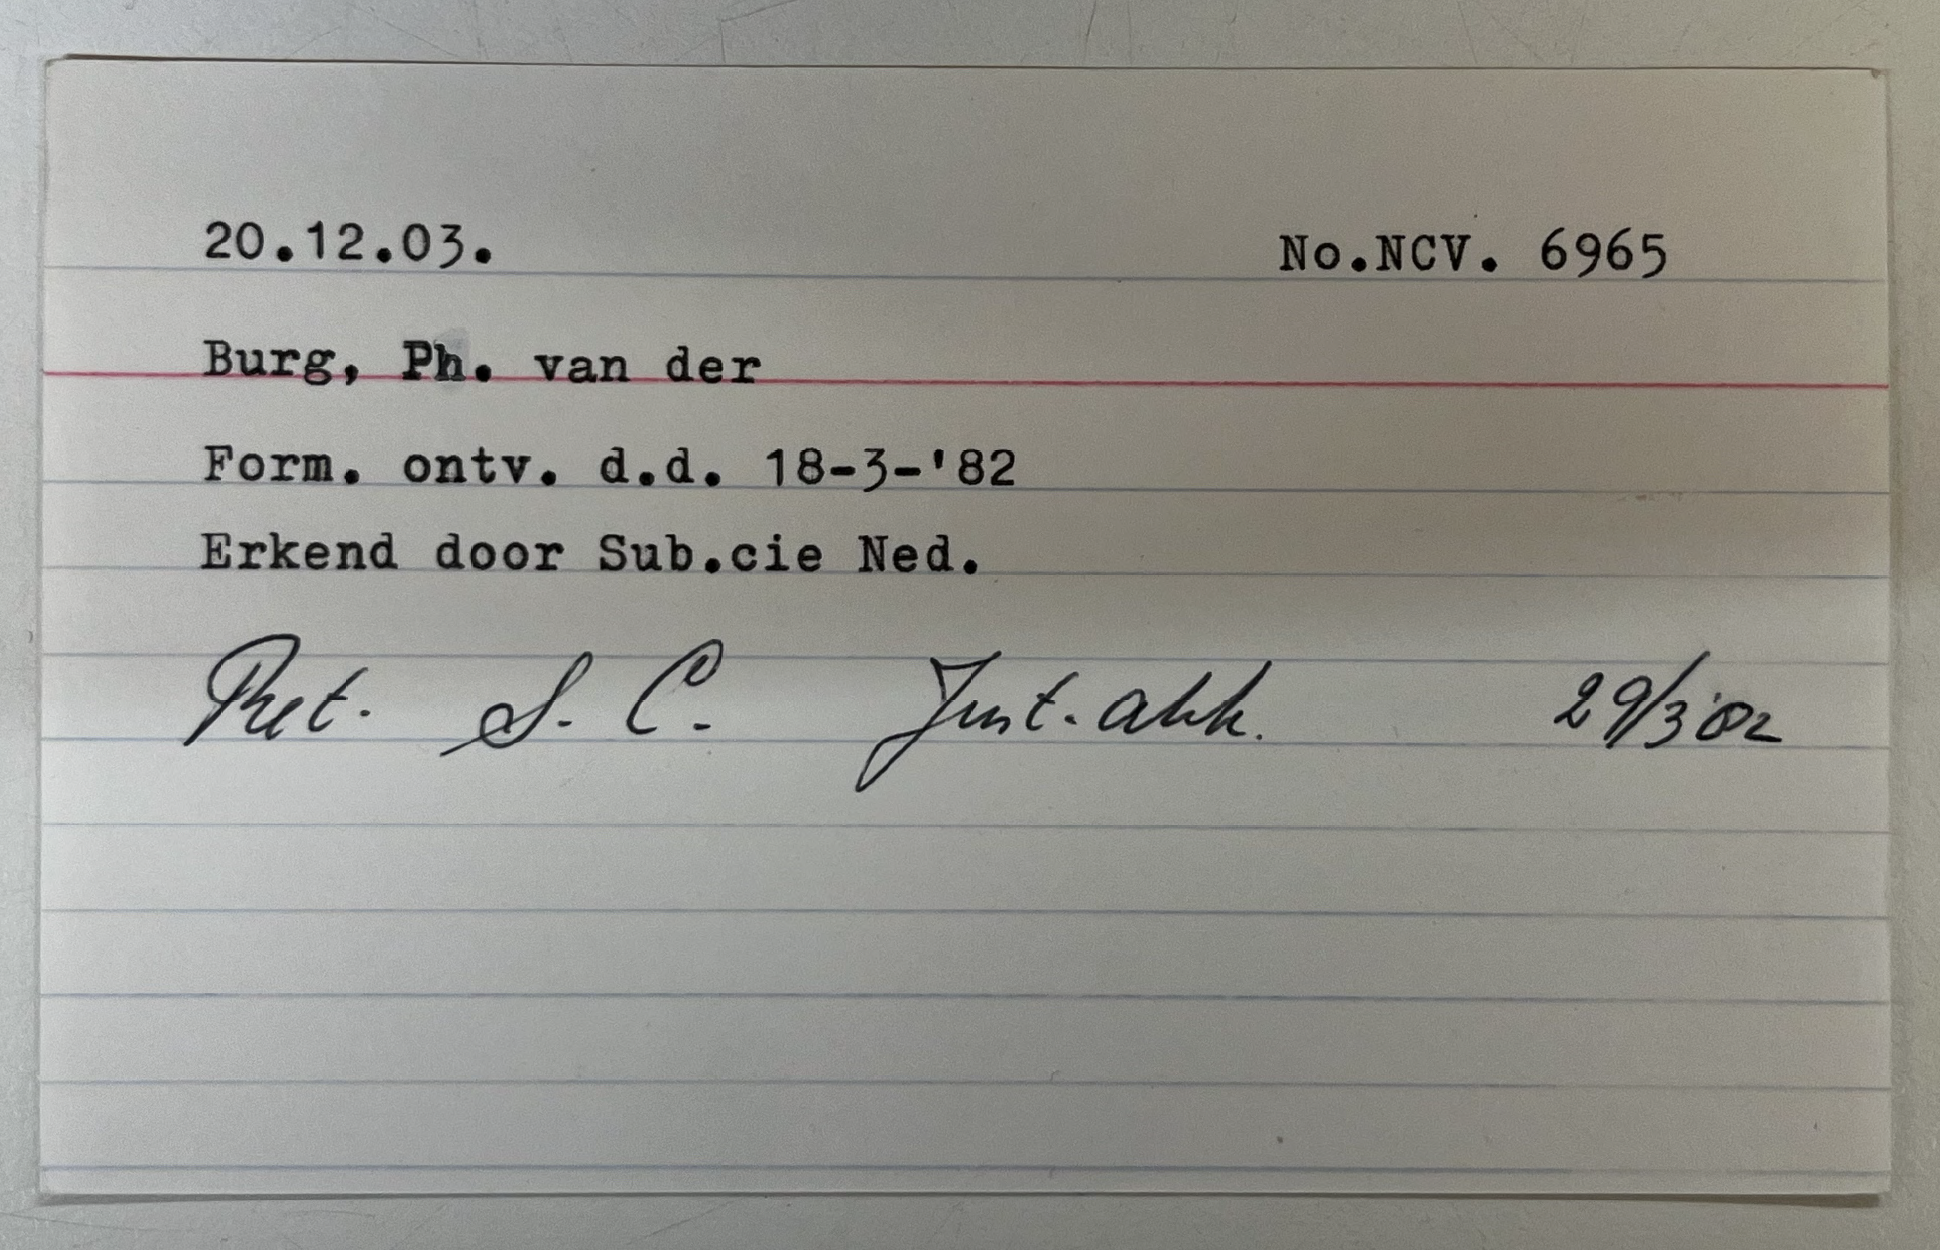 20.12.03. No.NCV. 6965
Burg, Ph. van der
Form. ontv. d.d. 18-3-'82
Erkend door Sub.cie Ned.
Ret. S. C. Inst. akk. 29/3'82